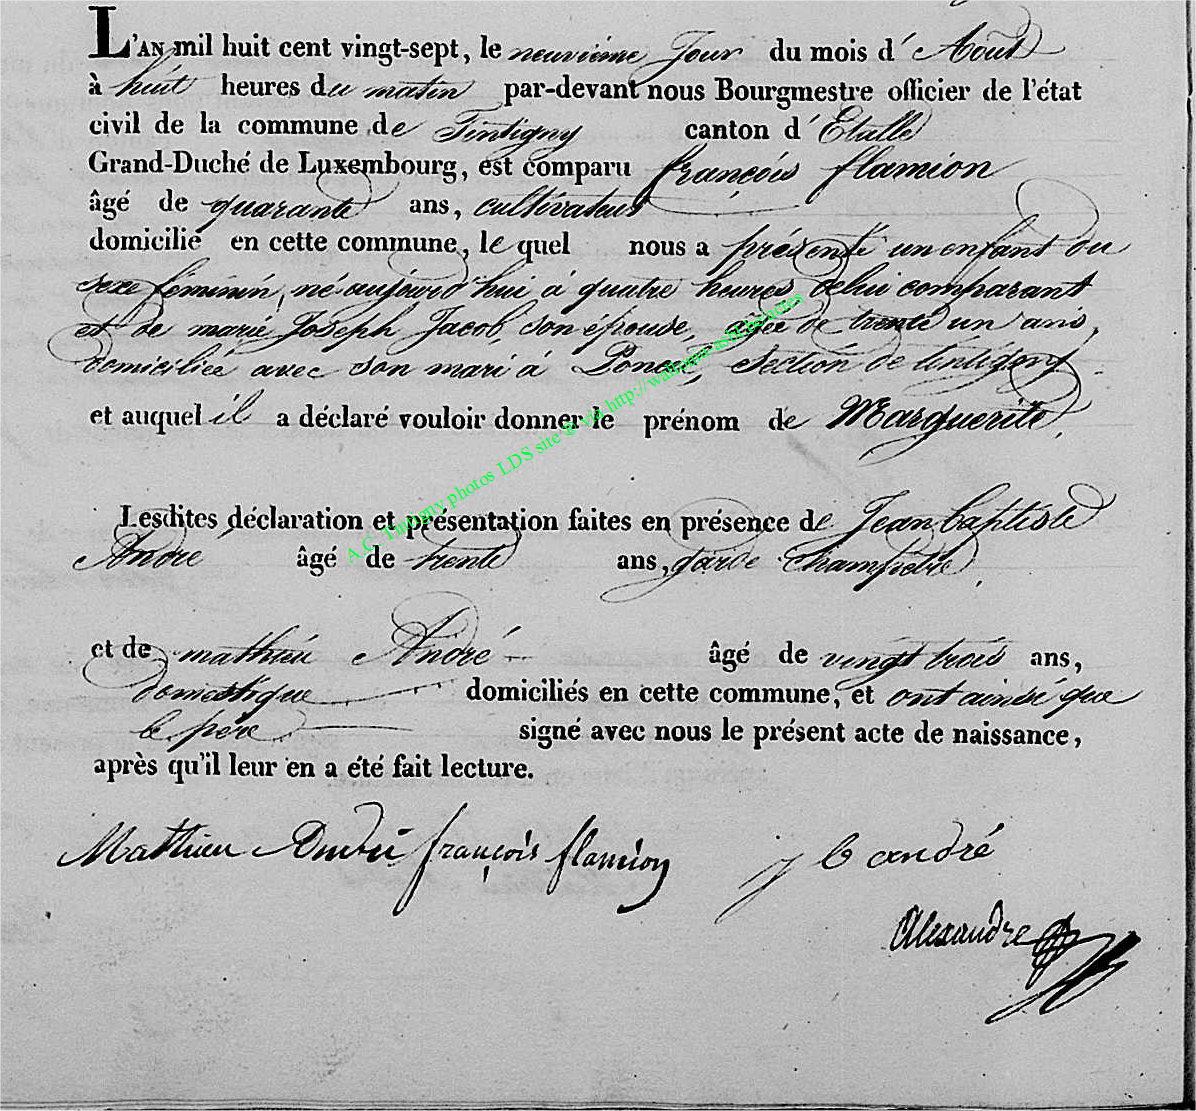 L'AN mil huit cent vingt-sept, le neuvième Jour du mois d'Aout
à huit heures du matin par-devant nous Bourgmestre officier de l'état
civil de la commune de Tintigny canton d'Etalle
Grand-Duché de Luxembourg, est comparu françois flamion
âgé de quarante ans, cultivateur
domicilié en cette commune, le quel nous a présenté un enfant du
sexe féminin, né aujourd'hui à quatre heures, delui comparant
et de marie Joseph Jacob, son épouse, agée de trente un ans,
domiciliée avec son mari à Poncel, Section de tintigny
et auquel il a déclaré vouloir donner le prénom de Marguerite,
A.C. Tintigny photos LDS site via http://wallonia-asbl.be/actes
Lesdites déclaration et présentation faites en présence de Jean baptiste
André âgé de trente ans, garde Champetre,
et de mathieu André âgé de vingt trois ans,
domestique domiciliés en cette commune, et ont ainsi que
le père signé avec nous le présent acte de naissance,
après qu'il leur en a été fait lecture.
Mathieu André françois flamion j b andré
Alexandre